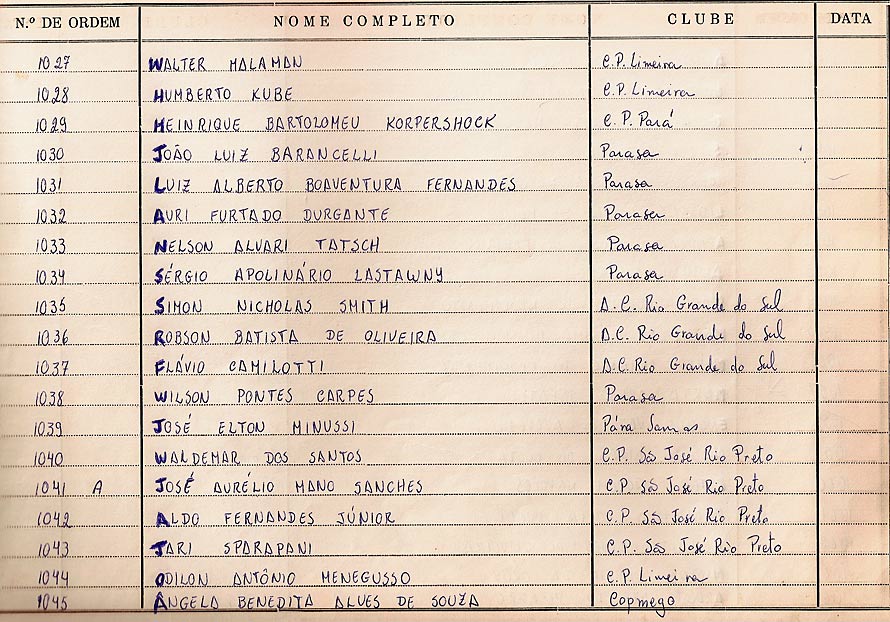 N.º DE ORDEM NOME COMPLETO CLUBE DATA
1027 WALTER MALAMAN C.P. Limeira
1028 HUMBERTO KUBE C.P. Limeira
1029 HEINRIQUE BARTOLOMEU KORPERSHOCK C.P. Pará
1030 JOÃO LUIZ BARANCELLI Parasa
1031 LUIZ ALBERTO BOAVENTURA FERNANDES Parasa
1032 AURI FURTADO DURGANTE Parasa
1033 NELSON ALVARI TATSCH Parasa
1034 SÉRGIO APOLINÁRIO LASTAWNY Parasa
1035 SIMON NICHOLAS SMITH A.C. Rio Grande do Sul
1036 ROBSON BATISTA DE OLIVEIRA A.C. Rio Grande do Sul
1037 FLÁVIO CAMILOTTI A.C. Rio Grande do Sul
1038 WILSON PONTES CARPES Parasa
1039 JOSÉ ELTON MINUSSI Pára
1040 WALDEMAR DOS SANTOS C.P. São José Rio Preto
1041 A JOSÉ AURÉLIO MANO SANCHES C.P. São José Rio Preto
1042 ALDO FERNANDES JÚNIOR C.P. São José Rio Preto
1043 JARI SPARAPANI C.P. São José Rio Preto
1044 ODILON ANTÔNIO MENEGUSSO C.P. Limeira
1045 ÂNGELA BENEDITA ALVES DE SOUZA Copmego